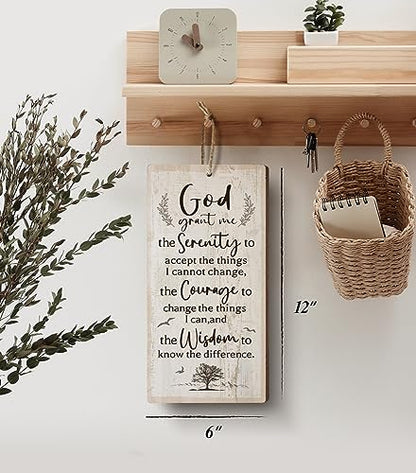 God
grant me
the Serenity to
accept the things
I cannot change,
the Courage to
change the things
I can,and
the Wisdom to
know the difference.
12"
6"